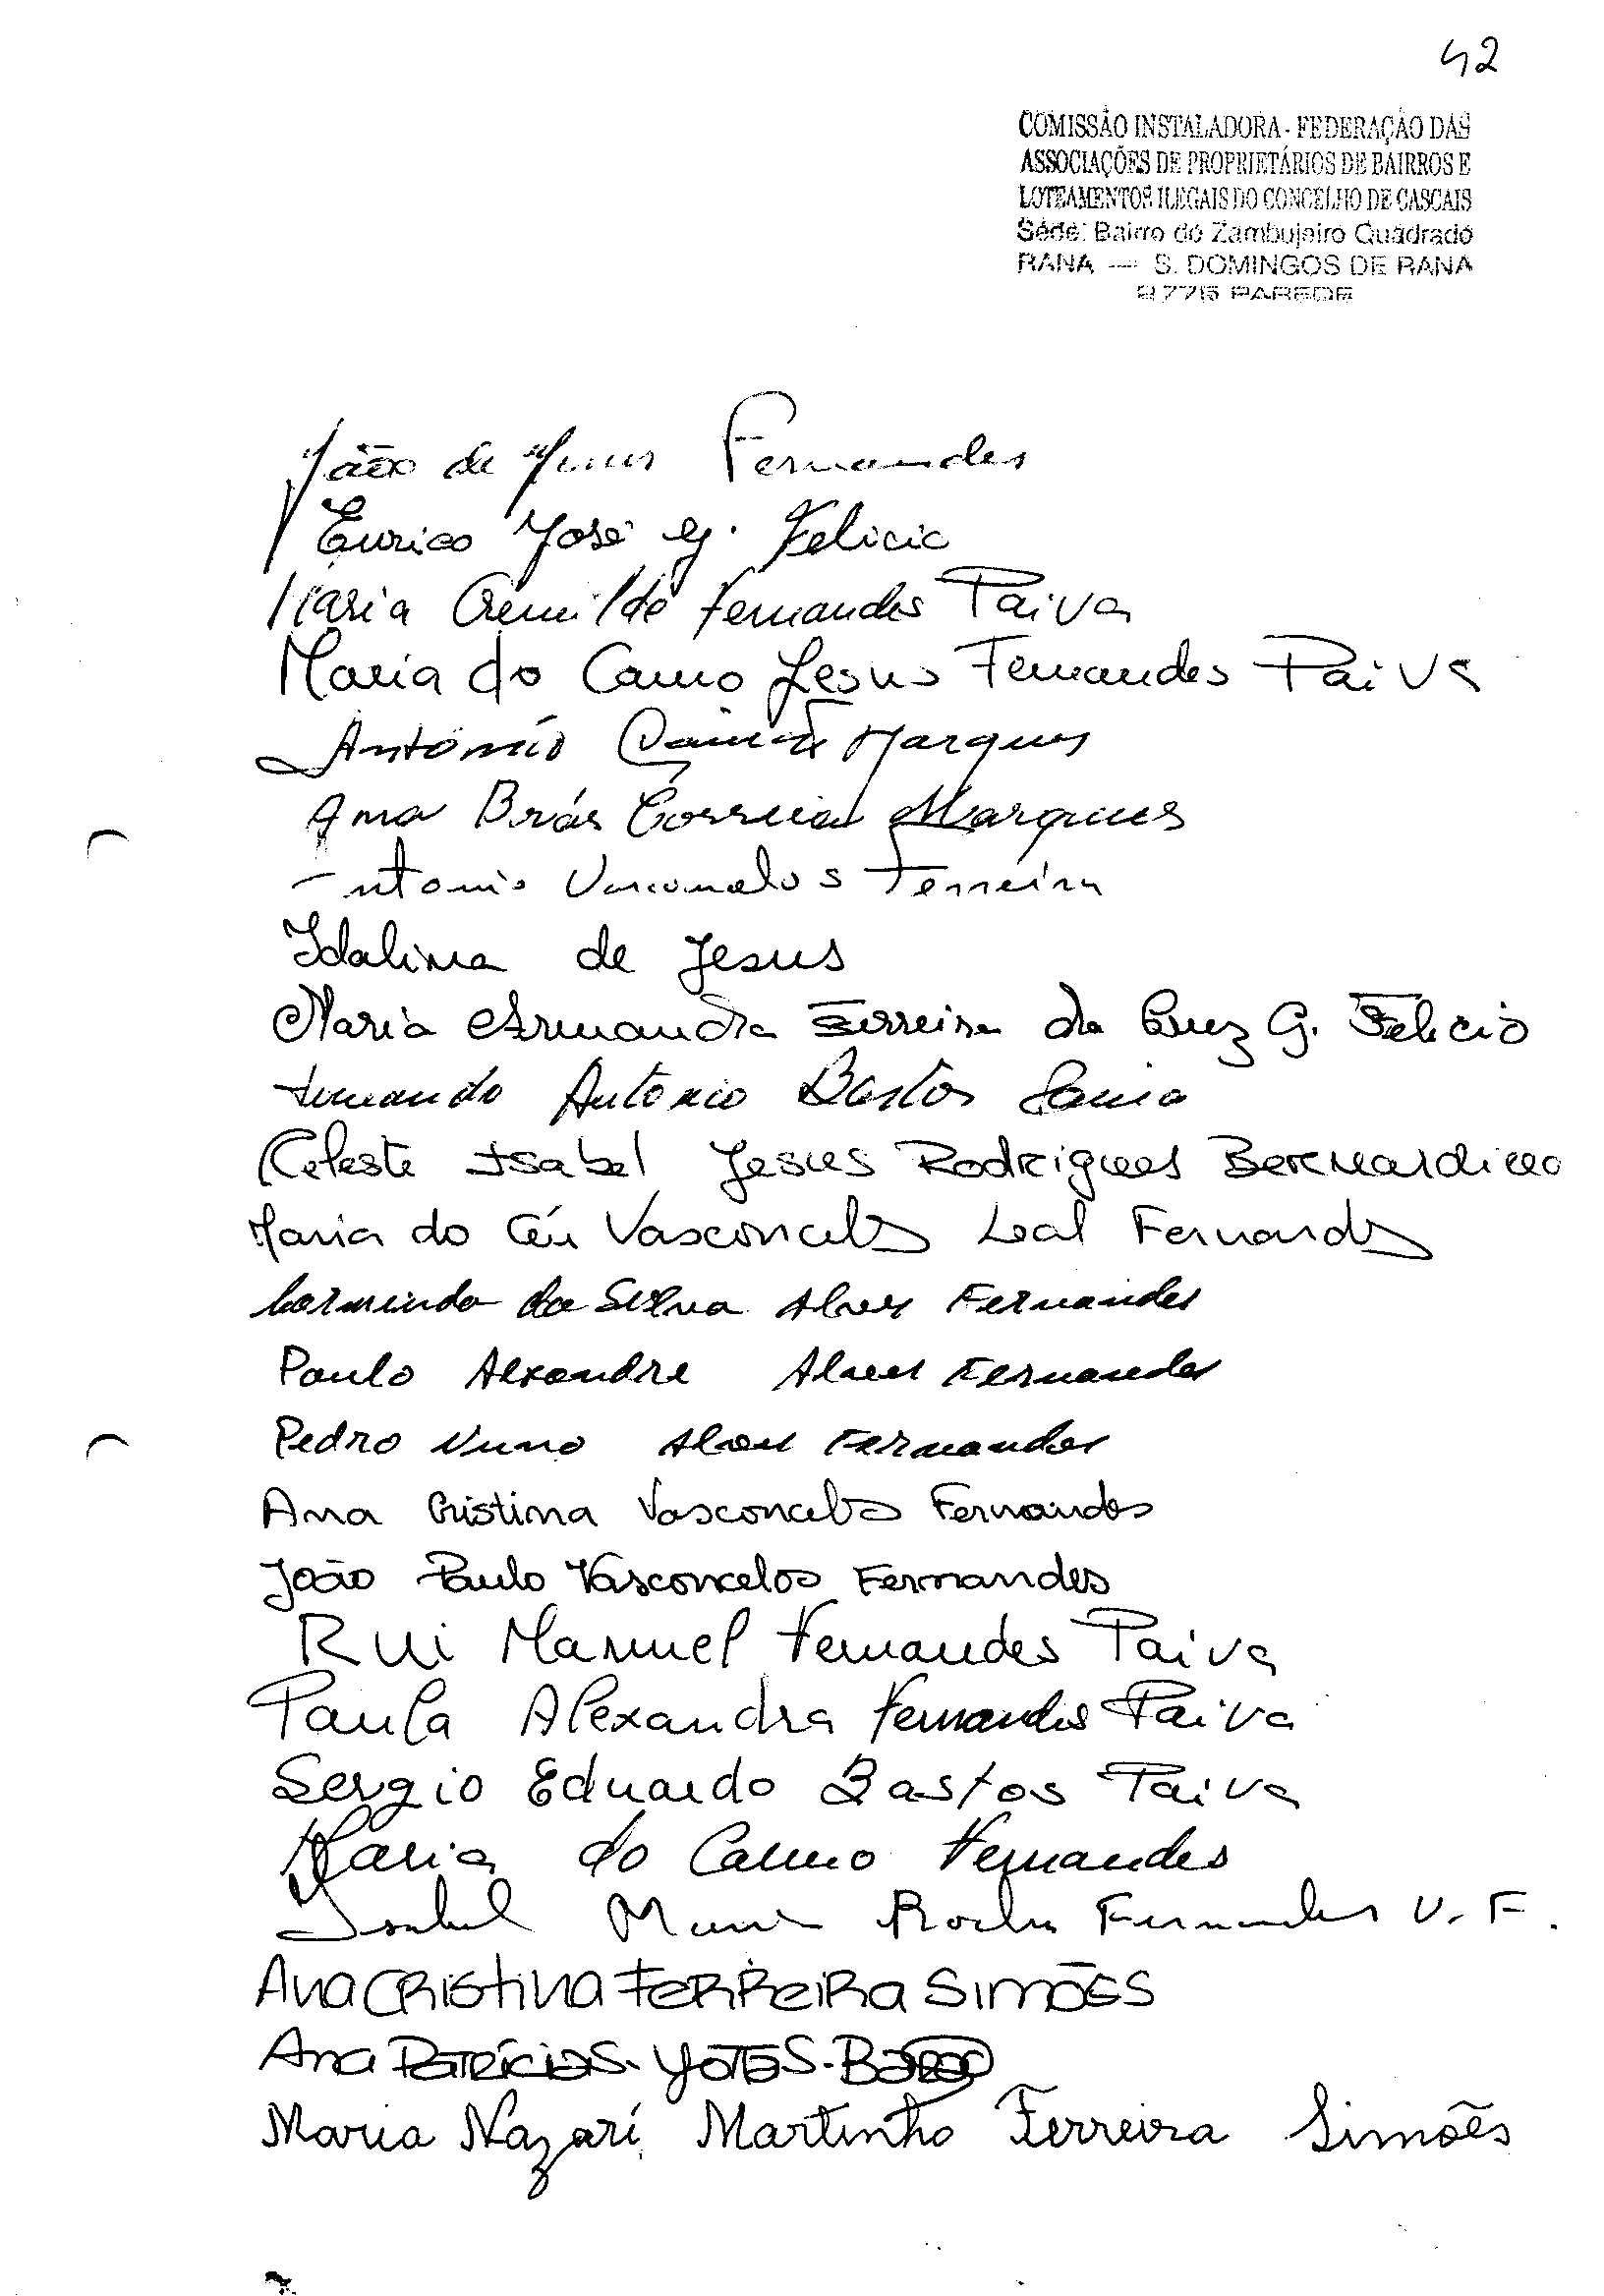 42
COMISSÃO INSTALADORA - FEDERAÇÃO DAS
ASSOCIAÇÕES DE PROPRIETÁRIOS DE BAIRROS E
LOTEAMENTOS ILEGAIS DO CONCELHO DE CASCAIS
Séde: Bairro do Zambujeiro Quadrado
RANA — S. DOMINGOS DE RANA
2775 PAREDE
João de Fernandes
Eurico José G. Felicio
Maria Fernandes Paiva
Maria do Carmo Jesus Fernandes Paiva
António Marques
Ana Brás Correia Marques
Antonio Vasconcelos Ferreira
Idalina de Jesus
Maria Armanda Ferreira da Cruz G. Felicio
Fernando Antonio Bastos
Celeste Isabel Jesus Rodrigues Bernardino
Maria do Céu Vasconcelos Leal Fernandes
da Silva Alves Fernandes
Paulo Alexandre Alves Fernandes
Pedro Nuno Alves Fernandes
Ana Cristina Vasconcelos Fernandes
João Paulo Vasconcelos Fernandes
Rui Manuel Fernandes Paiva
Paula Alexandra Fernandes Paiva
Sergio Eduardo Bastos Paiva
Maria do Carmo Fernandes
Isabel Maria Rocha Fernandes V. F.
Ana CRistina FERREIRA SIMÕES
Ana PATRÍCIA
Maria Nazaré Martinho Ferreira Simões